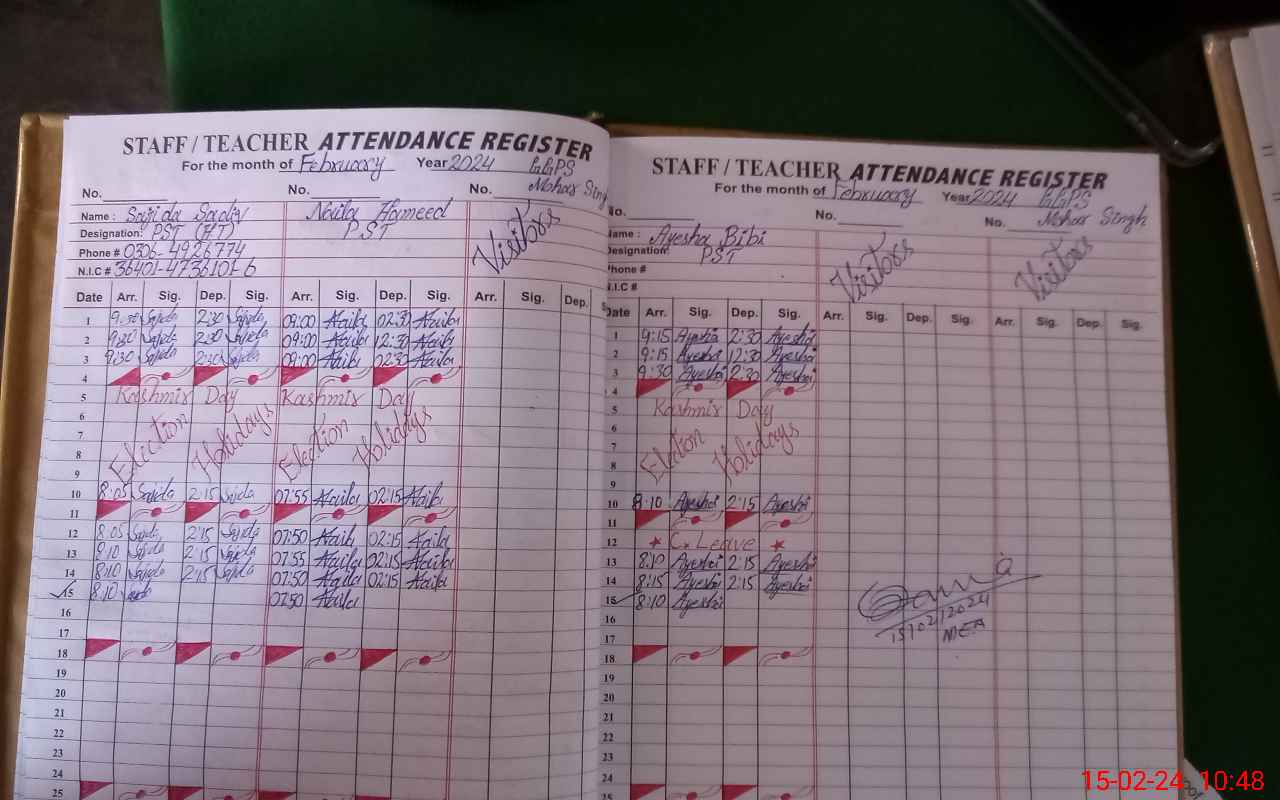 STAFF / TEACHER ATTENDANCE REGISTER
For the month of February Year 2024 GGPS
Mohar Singh
No. No. No.
Name : Sajida Sadiq Naila Hameed Visitors
Designation: PST (HT) PST
Phone # 0306-4926774
N.I.C # 36401-4736101-6
Date Arr. Sig. Dep. Sig. Arr. Sig. Dep. Sig. Arr. Sig. Dep.
1 9:30 Sajida 2:30 Sajida 09:00 Naila 02:30 Naila
2 9:30 Sajida 2:30 Sajida 09:00 Naila 12:30 Naila
3 9:30 Sajida 2:30 Sajida 09:00 Naila 02:30 Naila
4
5 Kashmir Day Kashmir Day
6
7 Election Holidays Election Holidays
8
9
10 8:05 Sajida 2:15 Sajida 07:55 Naila 02:15 Naila
11
12 8:05 Sajida 2:15 Sajida 07:50 Naila 02:15 Naila
13 8:10 Sajida 2:15 Sajida 07:55 Naila 02:15 Naila
14 8:10 Sajida 2:15 Sajida 07:50 Naila 02:15 Naila
15 8:10 Sajida 07:50 Naila
16
17
18
19
20
21
22
23
24
25
STAFF / TEACHER ATTENDANCE REGISTER
For the month of February Year 2024 GGPS
No. No. No. Mohar Singh
Name: Ayesha Bibi Visitors Visitors
Designation: PST
Phone #
N.I.C #
Date Arr. Sig. Dep. Sig. Arr. Sig. Dep. Sig. Arr. Sig. Dep. Sig.
1 9:15 Ayesha 2:30 Ayesha
2 9:15 Ayesha 12:30 Ayesha
3 9:30 Ayesha 2:30 Ayesha
4
5 Kashmir Day
6
7 Election Holidays
8
9
10 8:10 Ayesha 2:15 Ayesha
11
12 C. Leave
13 8:10 Ayesha 2:15 Ayesha
14 8:15 Ayesha 2:15 Ayesha
15 8:10 Ayesha
16
17
18
19
20
21
22
23
24
25
15/02/2024
MEA
15-02-24 10:48